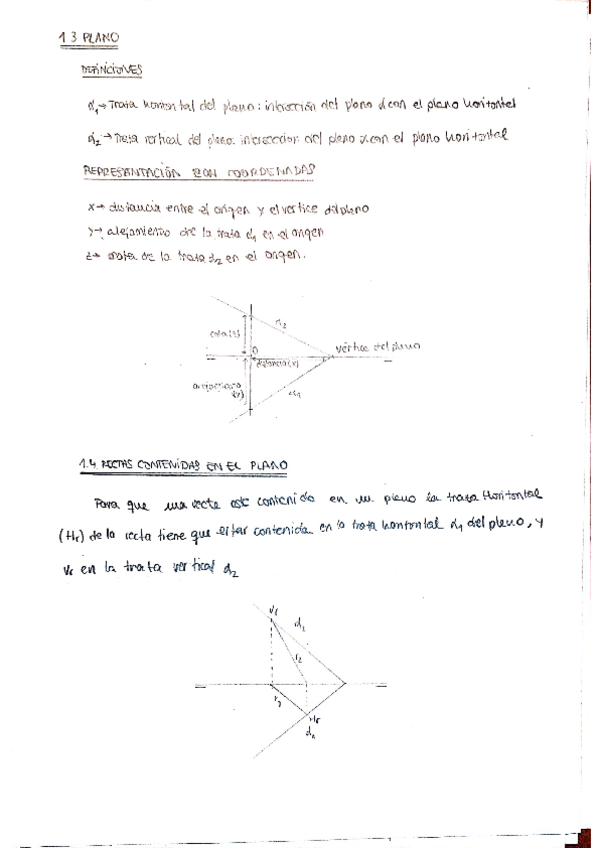 1.3 PLANO
DEFINICIONES
α1→ Traza horizontal del plano: intersección del plano α con el plano horizontal
α2→ Traza vertical del plano: intersección del plano α con el plano horizontal
REPRESENTACIÓN CON COORDENADAS
x→ distancia entre el origen y el vértice del plano
y→ alejamiento de la traza α1 en el origen
z→ cota de la traza α2 en el origen.
α2
cota(z)
O
vértice del plano
distancia(x)
alejamiento
(y)
α1
1.4 RECTAS CONTENIDAS EN EL PLANO
Para que una recta esté contenida en un plano la traza Horizontal
(Hr) de la recta tiene que estar contenida en la traza horizontal α1 del plano, y
Vr en la traza vertical α2
Vr
α2
r2
r1
Hr
α1